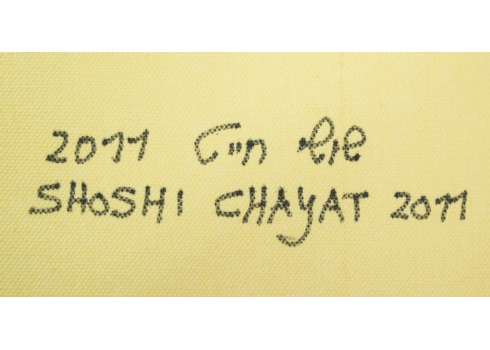 שושי חייט 2011
SHOSHI CHAYAT 2011